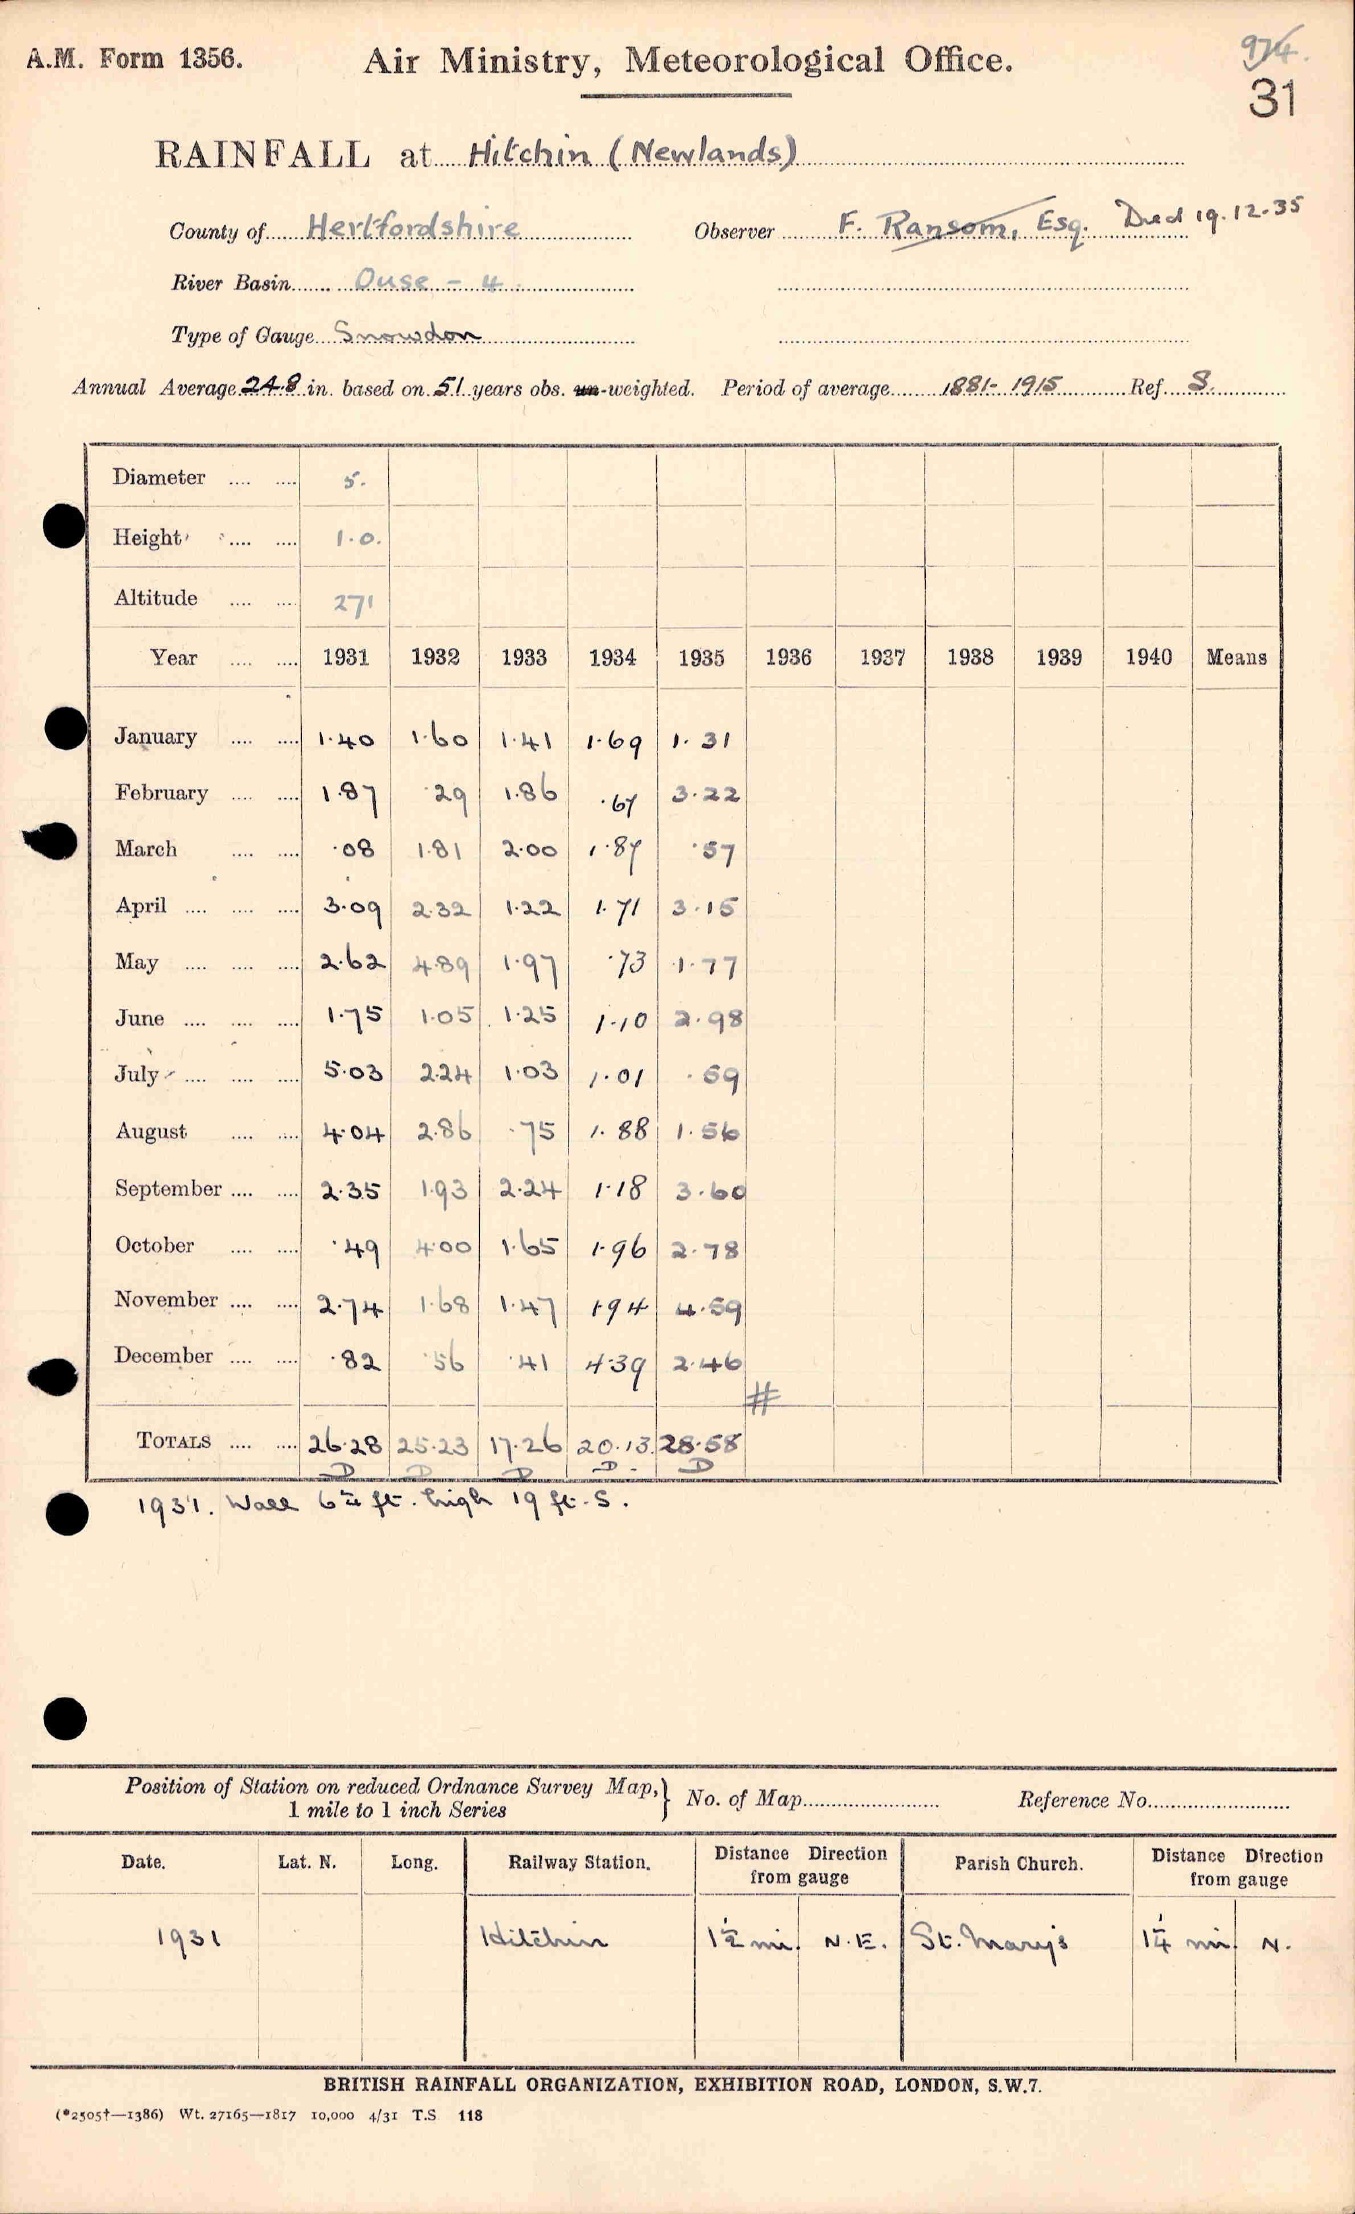 A.M. Form 1356. Air Ministry, Meteorological Office. 974.
31
RAINFALL at Hitchin (Newlands)
County of Hertfordshire Observer F. Ransom, Esq. Died 19.12.35
River Basin Ouse - 4
Type of Gauge Snowdon
Annual Average 24.8 in. based on 51 years obs. un-weighted. Period of average 1881-1915 Ref. S.
Diameter .... .... 5.
Height .... .... 1.0.
Altitude .... .... 271
Year .... .... 1931 1932 1933 1934 1935 1936 1937 1938 1939 1940 Means
January .... .... 1.40 1.60 1.41 1.69 1.31
February .... .... 1.87 .29 1.86 .67 3.22
March .... .... .08 1.81 2.00 1.87 .57
April .... .... .... 3.09 2.32 1.22 1.71 3.15
May .... .... .... 2.62 4.89 1.97 .73 1.77
June .... .... .... 1.75 1.05 1.25 1.10 2.98
July .... .... .... 5.03 2.24 1.03 1.01 .59
August .... .... 4.04 2.86 .75 1.88 1.56
September .... .... 2.35 1.93 2.24 1.18 3.60
October .... .... .49 4.00 1.65 1.96 2.78
November .... .... 2.74 1.68 1.47 1.94 4.59
December .... .... .82 .56 .41 4.39 2.46
#
TOTALS .... .... 26.28 25.23 17.26 20.13 28.58
D D D D D
1931. Wall 6 ft. high 19 ft. S.
Position of Station on reduced Ordnance Survey Map, } No. of Map Reference No.
1 mile to 1 inch Series
Date. Lat. N. Long. Railway Station. Distance Direction from gauge Parish Church. Distance Direction from gauge
1931 Hitchin 1½ mi. N.E. St. Mary's 1¼ mi N.
BRITISH RAINFALL ORGANIZATION, EXHIBITION ROAD, LONDON, S.W.7.
(*2505†—1386) Wt. 27165—1817 10,000 4/31 T.S 118